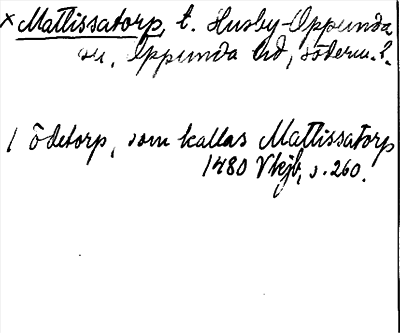 × Matlissatorp, t. Husby-Oppunda
sn, Oppunda hd, söderm.?.
1 ödetorp, som kallas Matlissatorp
1480 Vkjb, s. 260.